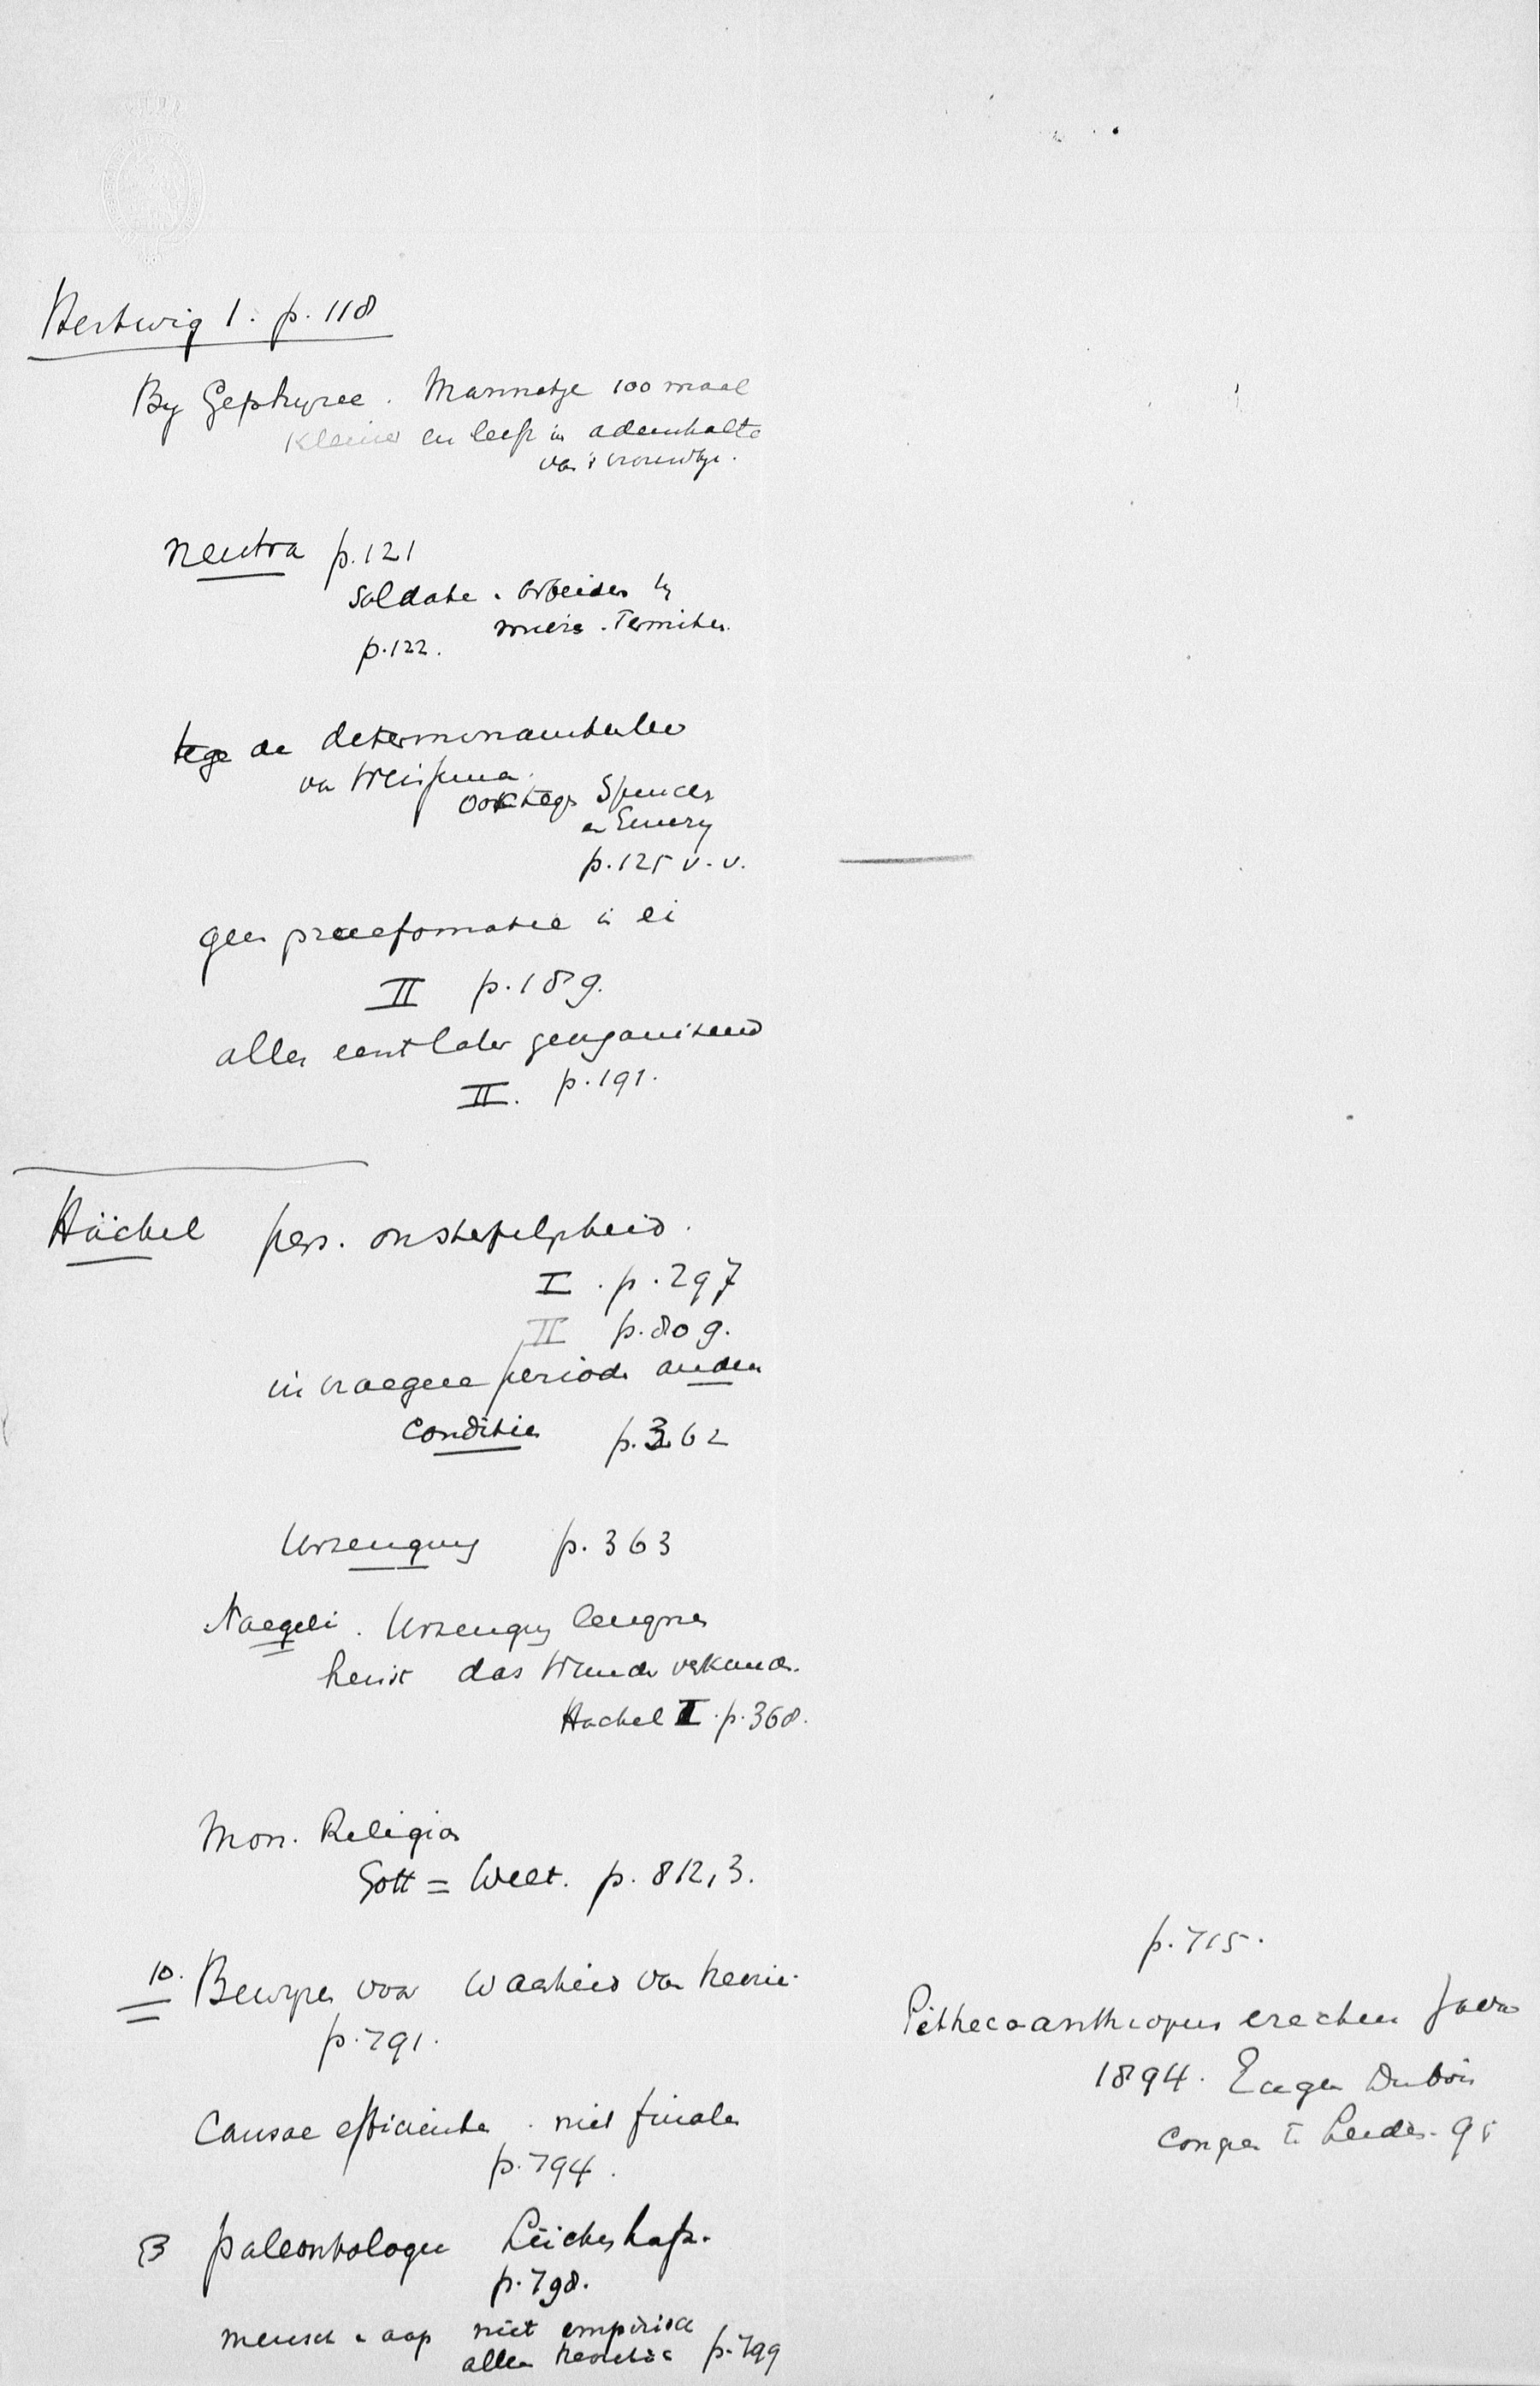 Hertwig 1. p. 118
By Gephyree. Mannetje 100 maal
kleiner en leeft in ademhalte
van 't vrouwtje.
neutra p. 121
soldate. arbeiders by
miere. Termiten.
p. 122.
tege de determinantenleer
van Weisman.
ook tege Spencer
en Emery
p. 125 v.v.
geen praeformatie in ei
II p. 189.
alles eerst later georganiseerd
II. p. 191.
Häckel pers. onsterfelykheid.
I. p. 297
II p. 809.
in vroegere periode andere
Conditien p. 362
Urzeugung p. 363
Naegeli. Urzeugung leugnen
heisst das Wunder verkunden.
Hackel I. p. 368.
Mon. Religion
Gott = Welt. p. 812,3.
10. Bewyzen voor waarheid van theorie.
p. 791.
Causae efficientes. niet finales
p. 794.
B paleontologie Lückenhaft.
p. 798.
mensch & aap niet empirisch
alleen theoretisch p. 799
p. 715.
Pithecoanthropus erectus Java
1894. Eugen Dubois
Congres te Leiden. 95